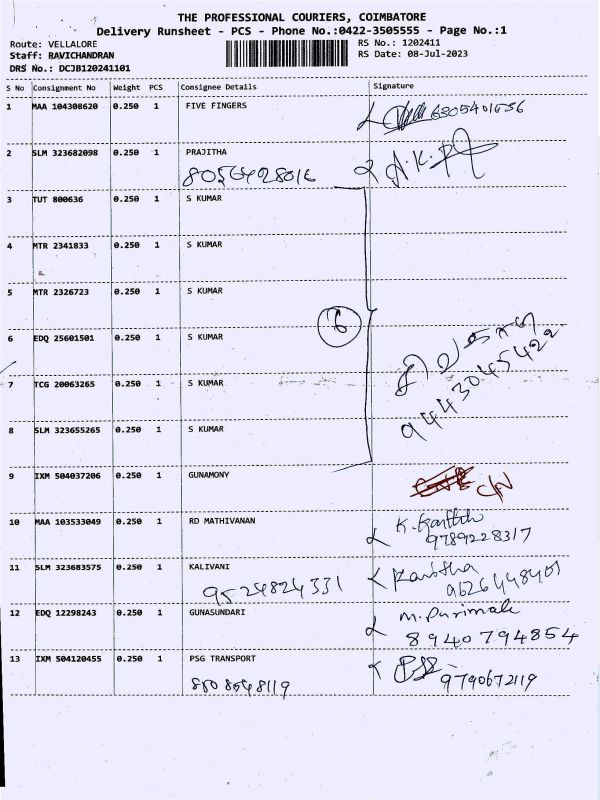 THE PROFESSIONAL COURIERS, COIMBATORE
Delivery Runsheet - PCS - Phone No.:0422-3505555 - Page No.:1
Route: VELLALORE RS No.: 1202411
Staff: RAVICHANDRAN RS Date: 08-Jul-2023
DRS No.: DCJB120241101
S No Consignment No Weight PCS Consignee Details Signature
1 MAA 104308620 0.250 1 FIVE FINGERS
2 SLM 323682098 0.250 1 PRAJITHA
8056428016
3 TUT 800636 0.250 1 S KUMAR
4 MTR 2341833 0.250 1 S KUMAR
5 MTR 2326723 0.250 1 S KUMAR
6
6 EDQ 25601501 0.250 1 S KUMAR
7 TCG 20063265 0.250 1 S KUMAR
9443045422
8 SLM 323655265 0.250 1 S KUMAR
9 IXM 504037206 0.250 1 GUNAMONY
C/N
10 MAA 103533049 0.250 1 RD MATHIVANAN K. Karthik
9789228317
11 SLM 323683575 0.250 1 KALIVANI
9524824331 9626448401
12 EDQ 12298243 0.250 1 GUNASUNDARI
8940794854
13 IXM 504120455 0.250 1 PSG TRANSPORT
9790672119